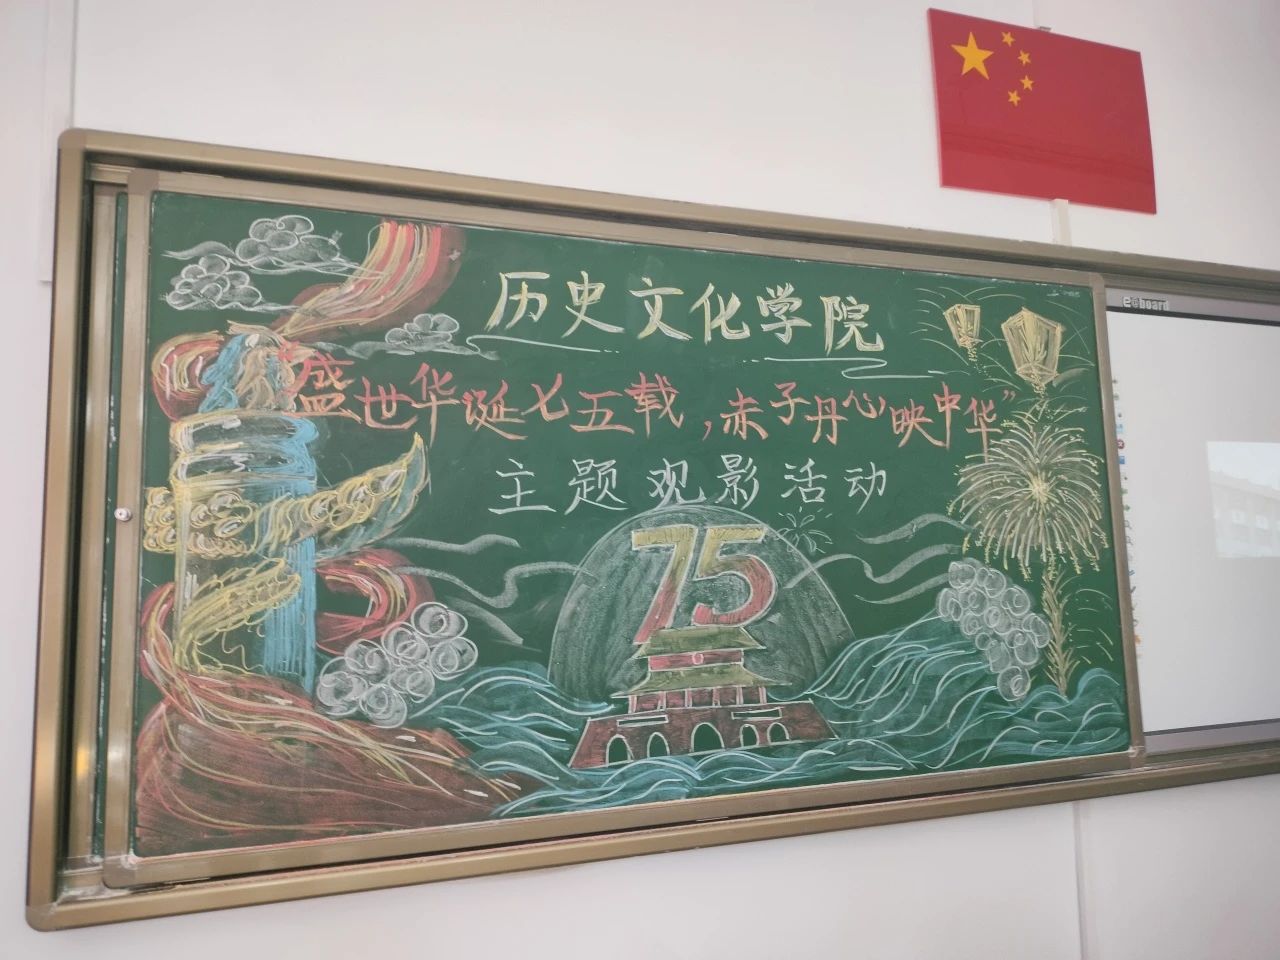 历史文化学院
“盛世华诞七五载，赤子丹心映中华”
主题观影活动
75
e@board